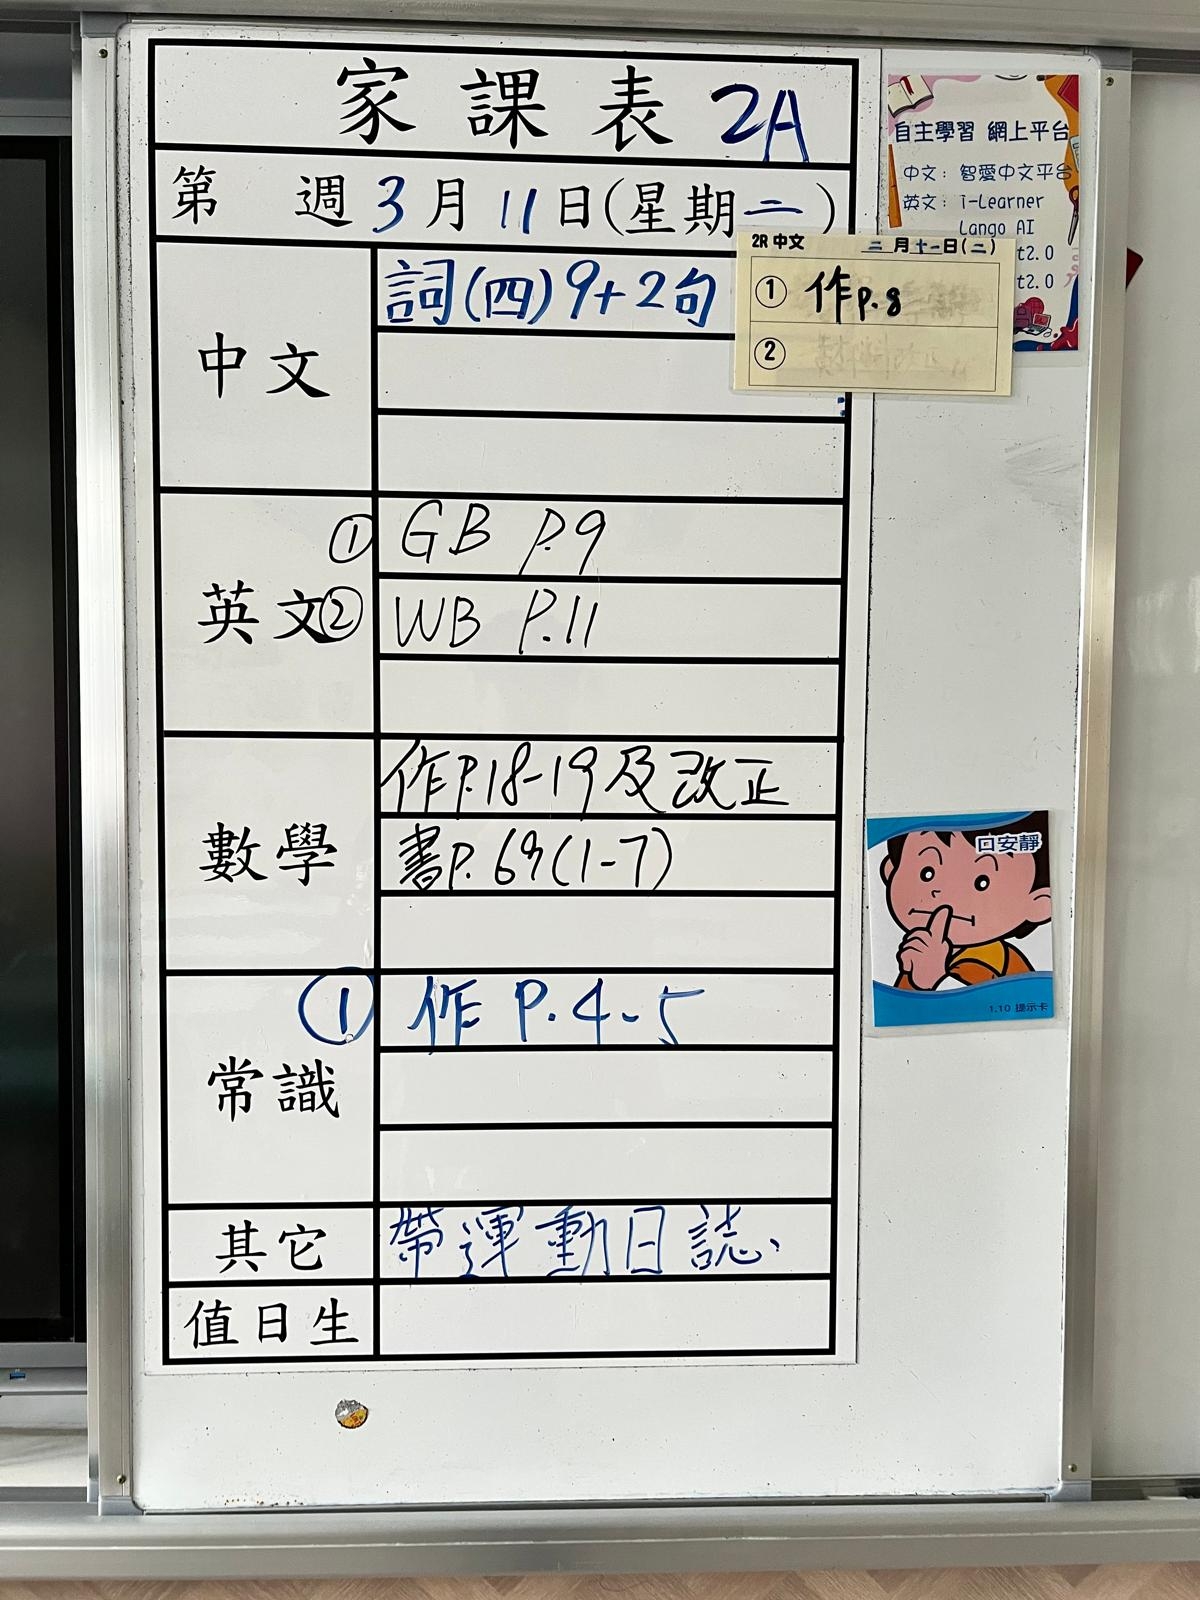 家課表 2A
第 週 3月11日(星期二)
中文
詞(四)9+2句
英文
① GB P.9
② WB P.11
數學
作P.18-19及改正
書P.69(1-7)
常識
① 作 P.4-5
其它
帶運動日誌、
值日生
2R 中文 三月十一日(二)
① 作p.8
②
自主學習 網上平台
中文：智愛中文平台
英文：i-Learner
Lango AI
t2.0
t2.0
口安靜
1.10 提示卡